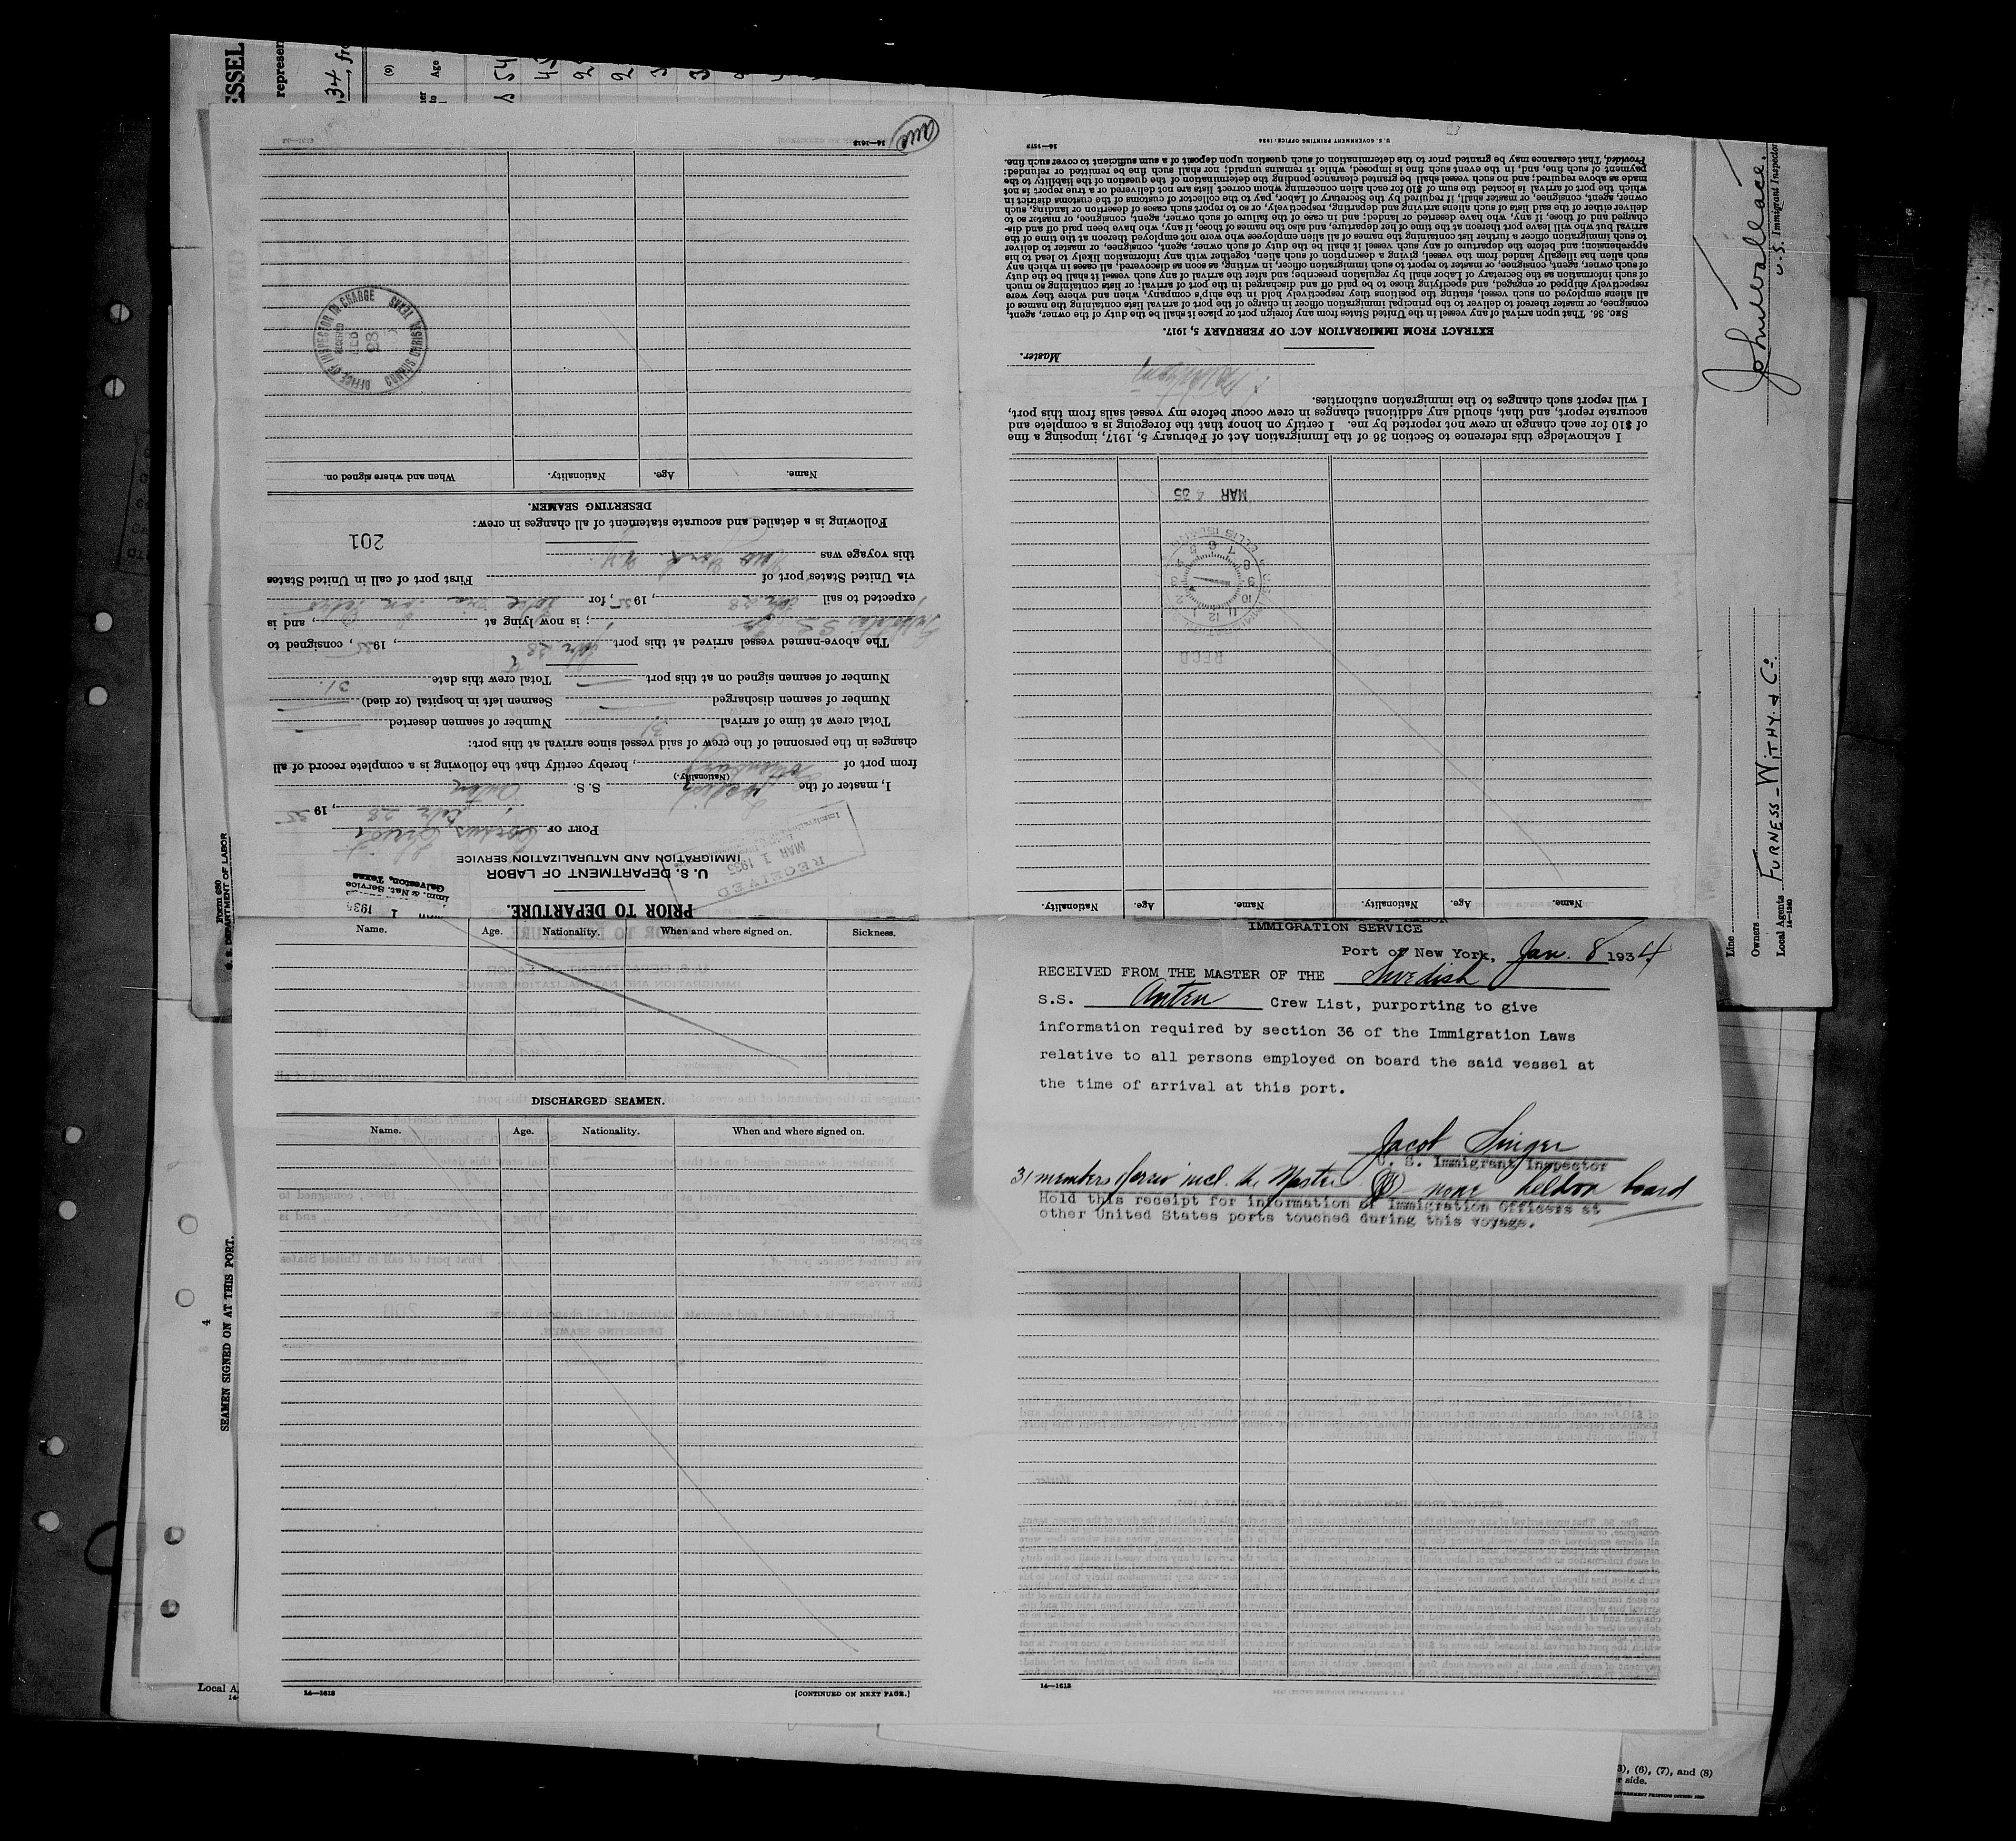 ESSEL
represen
34, fro
(9)
Age
54
14—1613
U. S. DEPARTMENT OF LABOR
IMMIGRATION AND NATURALIZATION SERVICE
PRIOR TO DEPARTURE.
PORT OF Corpus Christi, Feb. 28, 1935
I, master of the Swedish S. S. Anten
(Nationality.)
from port of Gothenburg, hereby certify that the following is a complete record of all
changes in the personnel of the crew of said vessel since arrival at this port:
Total crew at time of arrival 31 Number of seamen deserted
Number of seamen discharged Seamen left in hospital (or died)
Number of seamen signed on at this port Total crew this date 31
The above-named vessel arrived at this port Feb 28, 1935, consigned to
; is now lying at , and is
expected to sail 28, 1935, for via
via United States port of First port of call in United States
this voyage was New York N.Y.
201
Following is a detailed and accurate statement of all changes in crew:
DESERTING SEAMEN.
Name. Age. Nationality. When and where signed on.
OFFICE OF INSPECTOR IN CHARGE
RECEIVED
FEB
28
CORPUS CHRISTI, TEXAS
RECEIVED
MAR 1 1935
1 1935
Imm. & Nat. Service
Galveston, Texas
Name. Age. Nationality. Name. Age. Nationality.
RECD
MAR 4 35
I acknowledge this reference to Section 36 of the Immigration Act of February 5, 1917, imposing a fine
of $10 for each change in crew not reported by me. I certify on honor that the foregoing is a complete and
accurate report, and that, should any additional changes in crew occur before my vessel sails from this port,
I will report such changes to the immigration authorities.
Master.
EXTRACT FROM IMMIGRATION ACT OF FEBRUARY 5, 1917.
SEC. 36. That upon arrival of any vessel in the United States from any foreign port or place it shall be the duty of the owner, agent,
consignee, or master thereof to deliver to the principal immigration officer in charge of the port of arrival lists containing the names of
all aliens employed on such vessel, stating the positions they respectively hold in the ship's company, when and where they were
respectively shipped or engaged, and specifying those to be paid off and discharged in the port of arrival; or lists containing so much
of such information as the Secretary of Labor shall by regulation prescribe; and after the arrival of any such vessel it shall be the duty
of such owner, agent, consignee, or master to report to such immigration officer, in writing, as soon as discovered, all cases in which any
such alien has illegally landed from the vessel, giving a description of such alien, together with any information likely to lead to his
apprehension; and before the departure of any such vessel it shall be the duty of such owner, agent, consignee, or master to deliver
to such immigration officer a further list containing the names of all alien employees who were not employed thereon at the time of the
arrival but who will leave port thereon at the time of her departure, and also the names of those, if any, who have been paid off and dis-
charged and of those, if any, who have deserted or landed; and in case of the failure of such owner, agent, consignee, or master so to
deliver either of the said lists of such aliens arriving and departing, respectively, or so to report such cases of desertion or landing, such
owner, agent, consignee, or master, shall, if required by the Secretary of Labor, pay to the collector of customs of the customs district in
which the port of arrival is located the sum of $10 for each alien concerning whom correct lists are not delivered or a true report is not
made as above required; and no such vessel shall be granted clearance pending the determination of the question of the liability to the
payment of such fine, and, in the event such fine is imposed, while it remains unpaid; nor shall such fine be remitted or refunded:
Provided, That clearance may be granted prior to the determination of such question upon deposit of a sum sufficient to cover such fine.
U. S. GOVERNMENT PRINTING OFFICE: 1934
John Wallace.
U.S. Immigrant Inspector
Line
Owners FURNESS - WITHY & Co.
Local Agents
14—1240
Form 680
U. S. DEPARTMENT OF LABOR
Name. Age. Nationality. When and where signed on. Sickness.
DISCHARGED SEAMEN.
Name. Age. Nationality. When and where signed on.
14—1613 [CONTINUED ON NEXT PAGE.]
IMMIGRATION SERVICE
Port of New York, Jan. 8 1934
RECEIVED FROM THE MASTER OF THE Swedish
S.S. Anten Crew List, purporting to give
information required by section 36 of the Immigration Laws
relative to all persons employed on board the said vessel at
the time of arrival at this port.
Jacob Singer
U. S. Immigrant Inspector
31 members of crew incl. the Master - none held on board
Hold this receipt for information of Immigration Officers at
other United States ports touched during this voyage.
14—1613
4
SEAMEN SIGNED ON AT THIS PORT.
Local A
14-
3), (6), (7), and (8)
r side.